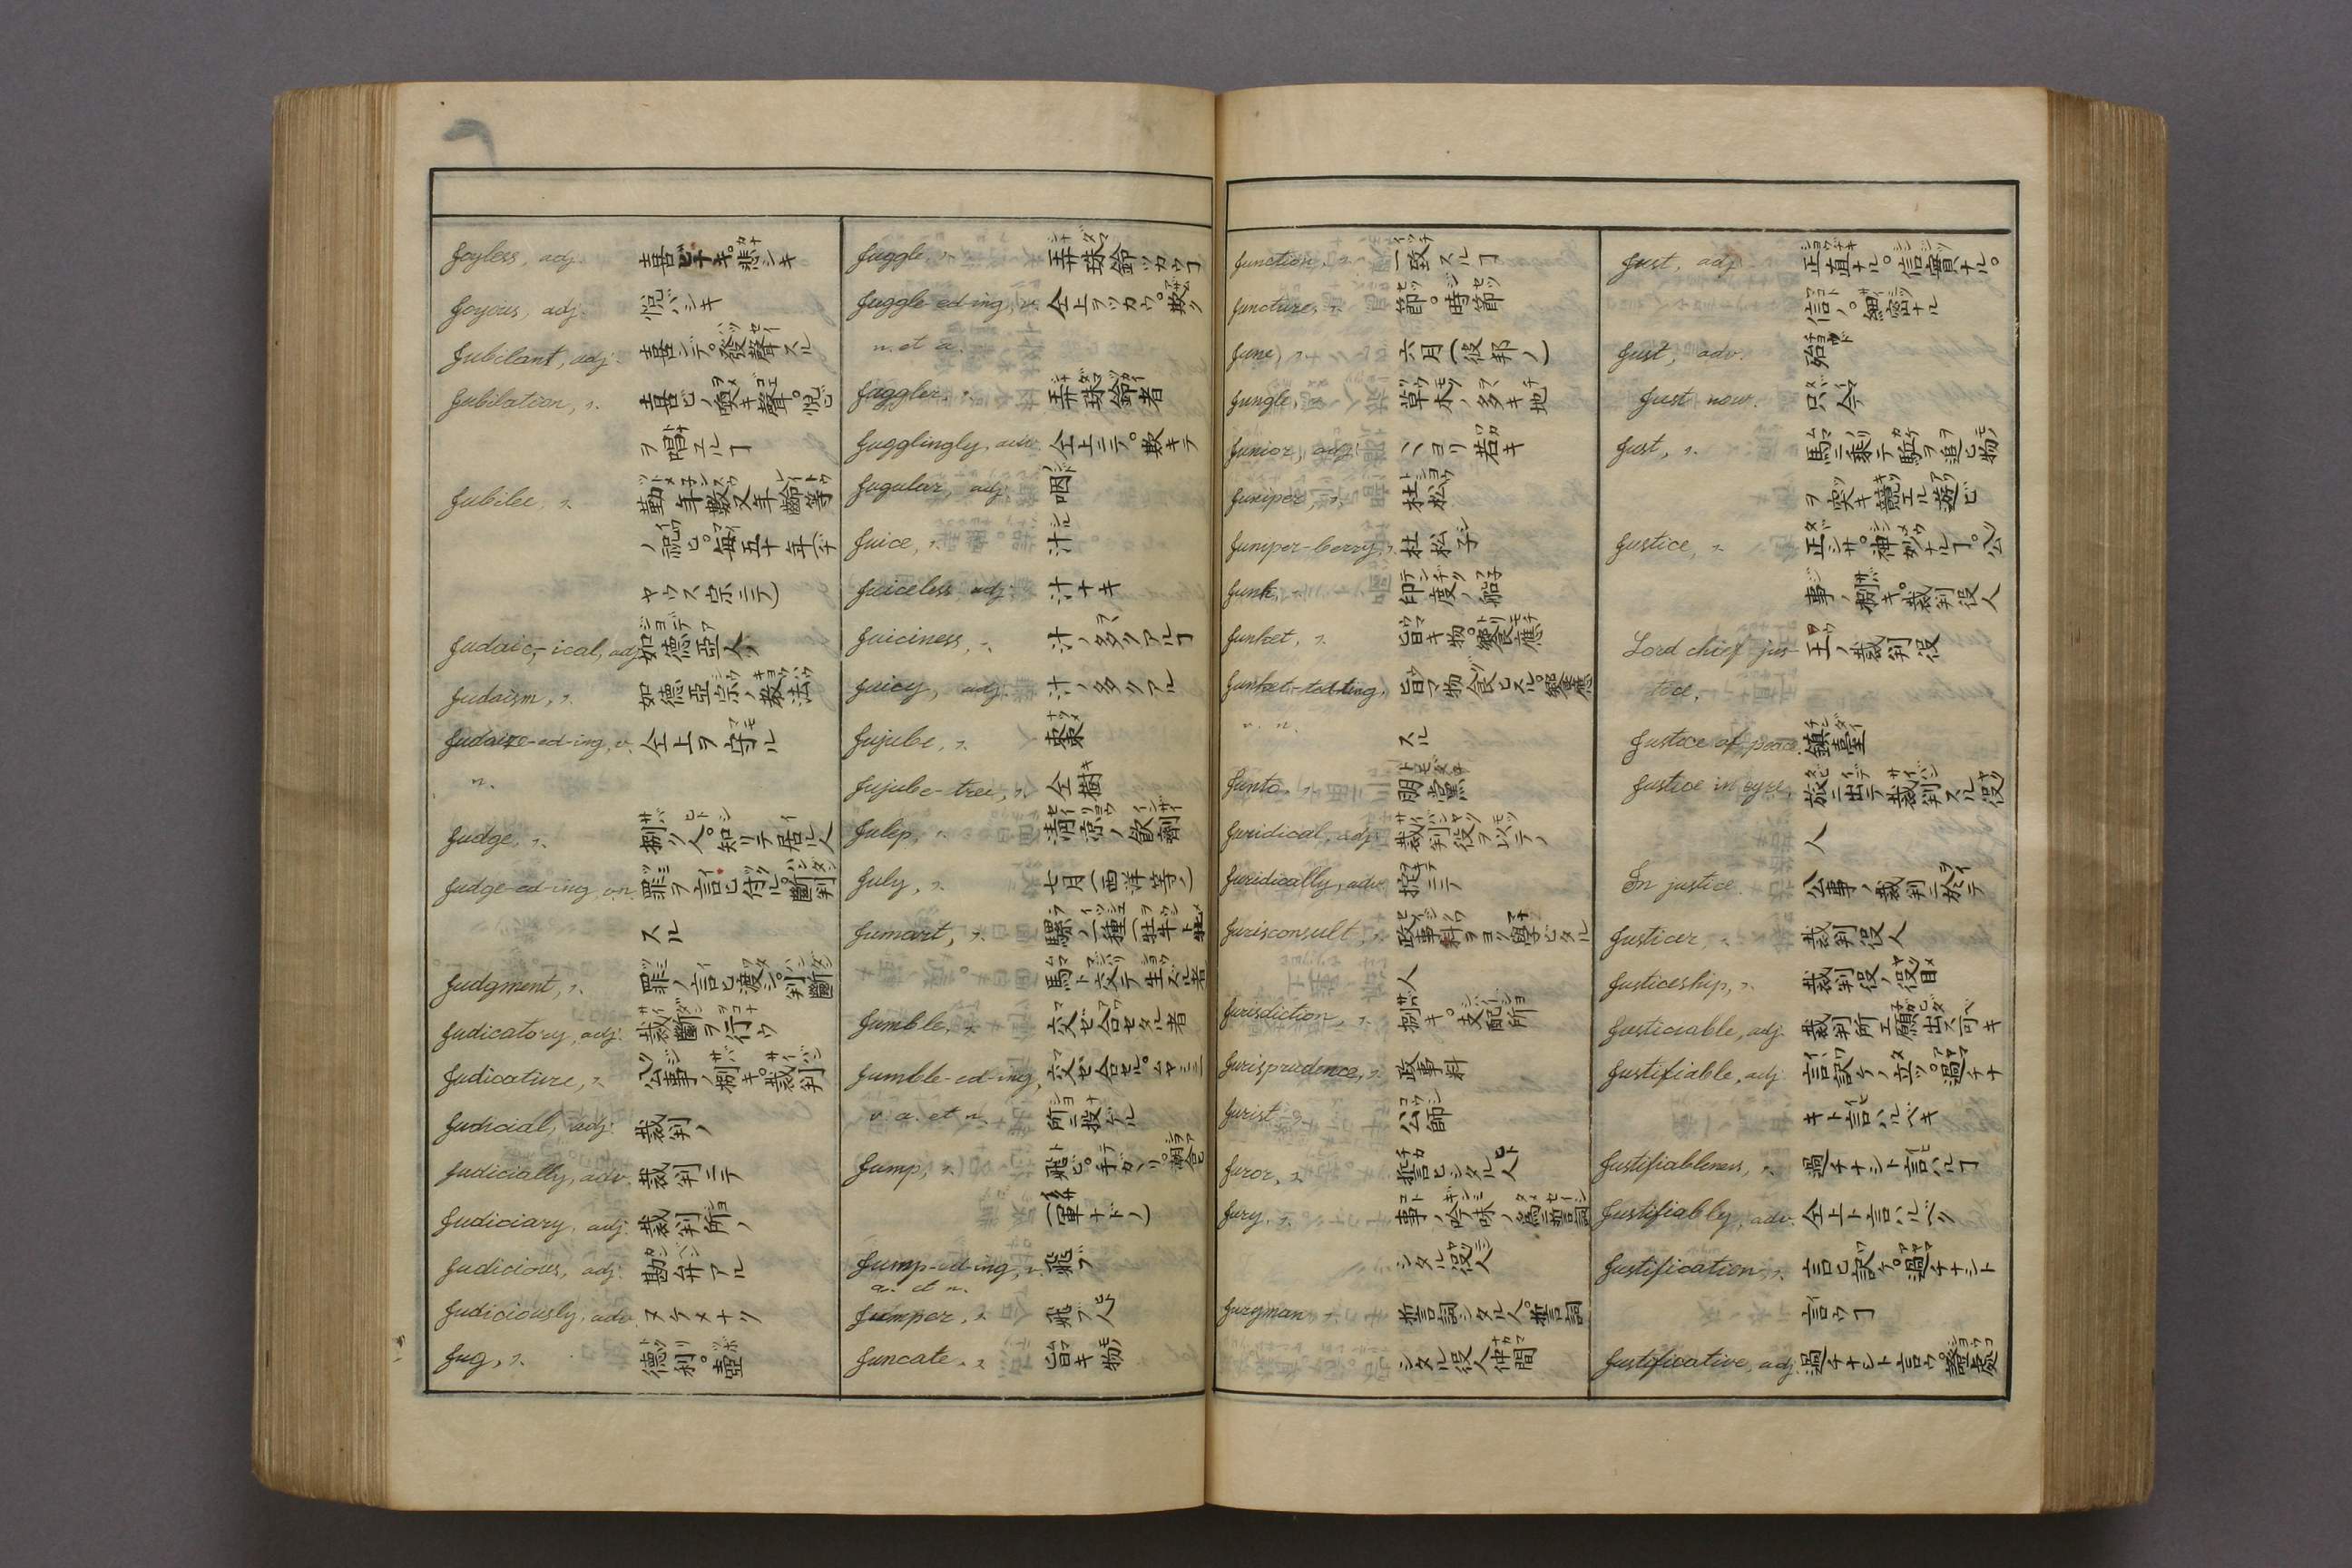 Joyless, adj. 喜ビナキ。悲シキ
Joyous, adj. 悦バシキ
Jubilant, adj. 喜ンデ。發聲スル
Jubilation, n. 喜ビノ喚キ聲。悦ビ
ヲ唱エルヿ
Jubilee, n. 勤年數又年齢等
ノ祝ヒ。毎五十年(チ
ヤウス宗ニテ)
Judaic,-ical, adj. 如德亞人ノ
Judaism, n. 如德亞宗ノ教法
Judaize-ed-ing, v. 仝上ヲ守ル
n.
Judge, n. 捌ク人。知リテ居ル人
Judge-ed-ing, v.n. 罪ヲ言ヒ付ル。斷判
スル
Judgment, n. 罪ノ言ヒ渡シ。判斷
Judicatory, adj. 裁斷ヲ行ウ
Judicature, n. 公事ノ捌キ。裁判
Judicial, adj. 裁判ノ
Judicially, adv. 裁判ニテ
Judiciary, adj. 裁判所ノ
Judicious, adj. 勘弁アル
Judiciously, adv. ヌケメナク
Jug, n. 德利。壺
Juggle, n. 弄珠鈴ツカウヿ
Juggle-ed-ing, v. 仝上ヲツカウ。欺ク
n. et a.
Juggler, n. 弄珠鈴者
Jugglingly, adv. 仝上ニテ。欺キテ
Jugular, adj. 咽ノ
Juice, n. 汁
Juiceless, adj. 汁ナキ
Juiciness, n. 汁ノ多クアルヿ
Juicy, adj. 汁ノ多クアル
Jujube, n. 棗
Jujube-tree, n. 仝樹
Julep, n. 清凉ノ飲劑
July, n. 七月(西洋等ノ)
Jumart, n. 騾ノ一種(牡牛ト牝
馬ト交テ生ズル者
Jumble, n. 交ゼ合セタル者
Jumble-ed-ing, 交ゼ合セル。ムヤミニ
v. a. et n. 所ニ投ゲル
Jump, n. 飛ビ。手ガカリ。
(軍ナドノ)
Jump-ed-ing, v. 飛ブ
a. et n.
Jumper, n. 飛ブ人
Juncate, n. 旨キ物
Junction, n. 一致スルヿ
Juncture, n. 節。時節
June, n. 六月(彼邦ノ)
Jungle, n. 草木ノ多キ地
Junior, adj. ヽヨリ若キ
Juniper, n. 杜松
Juniper-berry, n. 杜松子
Junk, n. 印度ノ船
Junket, n. 旨キ物。饗應
Junket-ted-ting, 旨マ物食ヒスル。饗應
v. n. スル
Junto, n. 朋黨
Juridical, adj. 裁判役ヲ以テノ
Juridically, adv. 掟ニテ
Jurisconsult, n. 政事科ヲヨク學ビタル
人
Jurisdiction, n. 捌キ。支配所
Jurisprudence, n. 政事科
Jurist, n. 公師
Juror, n. 誓ヒシタル人
Jury, n. 事ノ吟味ノ爲ニ誓詞
シタル役人
Juryman, n. 誓詞シタル人。誓詞
シタル役人仲間
Just, adj. 正直ナル。信實ナル。
信ノ。細密ナル
Just, adv. 殆ド
Just now. 只今
Just, n. 馬ニ乘テ駈ヲ追ヒ物
ヲ突キ競エル遊ビ
Justice, n. 正シサ。神妙ナルヿ。公
事ノ捌キ。裁判役人
Lord chief jus- 王ノ裁判役
tice,
Justice of peace, 鎮臺
Justice in eyre, 旅ニ出テ裁判スル役
人
In justice. 公事ノ裁判ニ於テ
Justicer, n. 裁判役人
Justiceship, n. 裁判役ノ役目
Justiciable, adj. 裁判所エ願出ス可キ
Justifiable, adj. 言訳ケノ立ツ。過チナ
キト言ハルベキ
Justifiableness, n. 過チナシト言ハルヿ
Justifiably, adv. 仝上ト言ハルベク
Justification, n. 言ヒ訳ケ。過チナシト
言ウヿ
Justificative, adj. 過チナヒト言ウ。證據